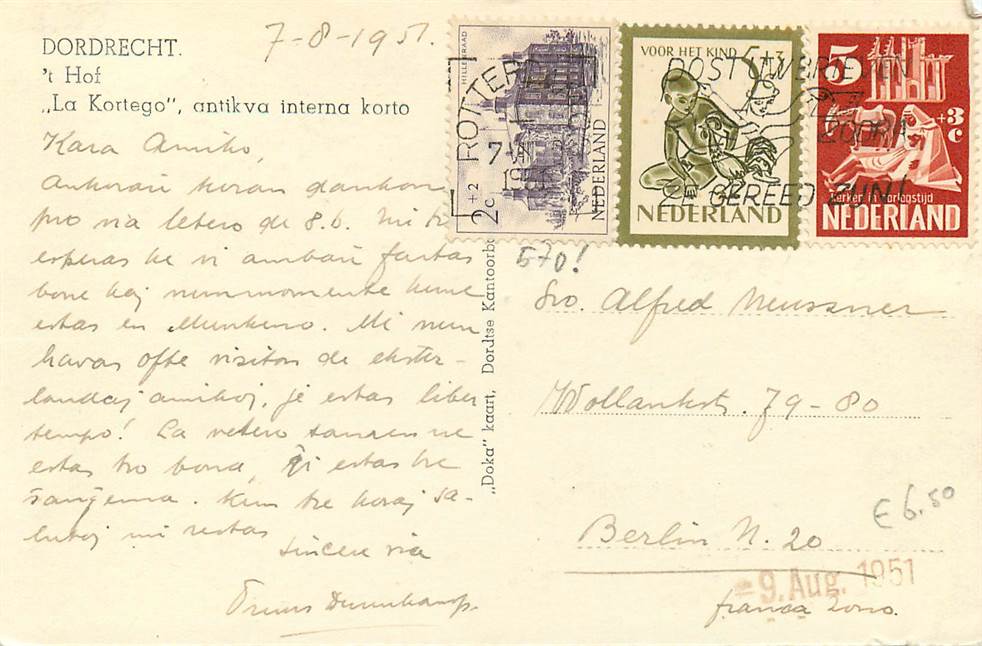 DORDRECHT.
't Hof
„La Kortego", antikva interna korto
7-8-1951.
Kara Amiko,
Ankoraŭ koran dankon
pro via letero de 8.6. Mi tre
esperas ke vi ambaŭ fartas
bone kaj nunmomente kune
estas en Munkeno. Mi nun
havas ofte visiton de ekster-
landaj amikoj, ĝi estas liber
tempo! La vetero tamen ne
estas tro bona, ĝi estas tre
ŝanĝema. Kun tre koraj sa-
lutoj mi restas
sincere via
„Doka" kaart, Dordtse Kantoorbo
HILLENRAAD
2c +2
NEDERLAND
VOOR HET KIND 5+3
NEDERLAND
5
+3 c
Kerken in oorlogstijd
NEDERLAND
ROTTER
7-VIII
19
POST UW BRIEVEN
ZODRA
ZE GEREED ZIJN!
570!
Sro. Alfred Neussner
Wollankstr. 79-80
Berlin N. 20
franca zono.
-9. Aug. 1951
€ 6.50